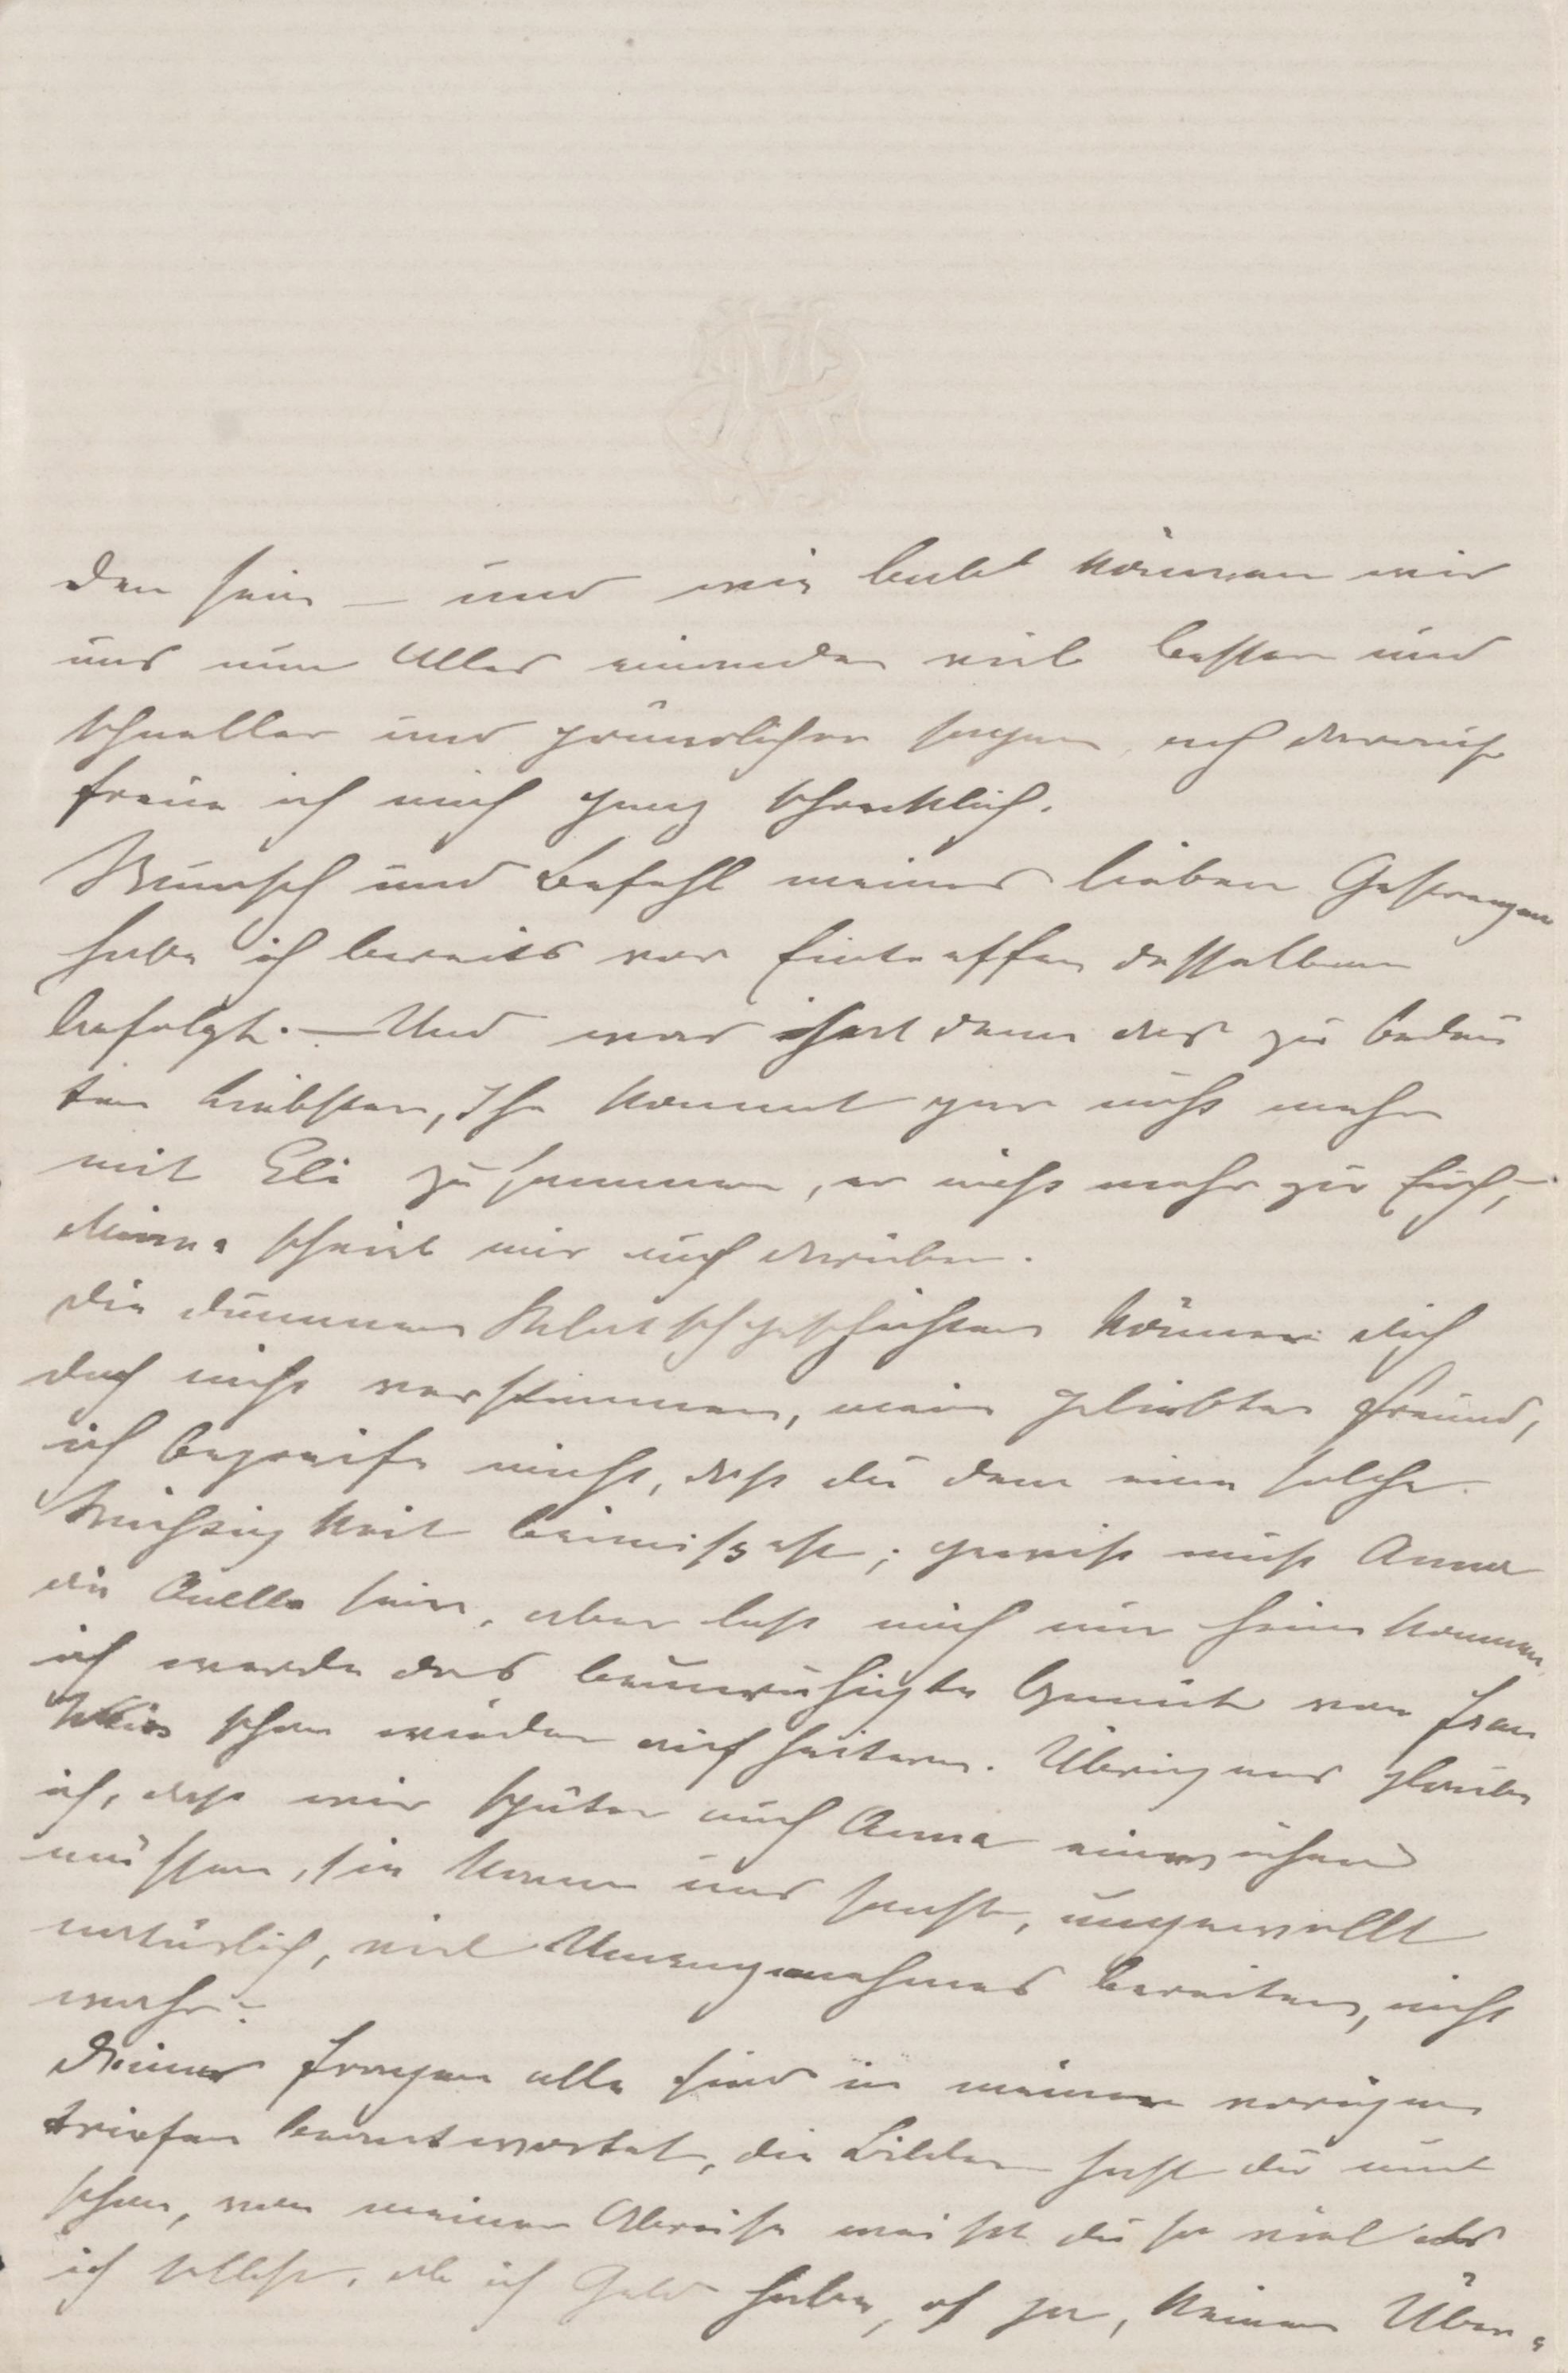 den sein – und wie bald können wir
uns nun Alles einander viel besser und
schneller und gründlicher sagen, ach darauf
freue ich mich ganz schrecklich.
Wunsch und Befehl meines lieben Gestrengen
habe ich bereits vor Eintreffen desselben
befolgt. – Und was hat denn das zu bedeu
ten Liebster, Ihr kommt gar nicht mehr
mit Eli zusammen, er nicht mehr zu Euch, –
Minna schreibt mir auch darüber.
Die dummen Klatschgeschichten können dich
doch nicht verstimmen, mein geliebter Freund,
ich begreife nicht, daß du dem eine solche
Wichtigkeit beimißest; gewiß muß Anna
die Quelle sein, aber laß mich nur heim kommen,
ich werde das beunruhigte Gemüt von Frau
schon wieder aufheitern. Übrigens glaube
ich, daß wir später auch Anna einweihen
müssen, sie kann uns sonst, ungewollt
natürlich, viel Unangenehmes bereiten, nicht
wahr?
Deine Fragen alle sind in meinen vorigen
Briefen beantwortet, die Bilder hast du nun
schon, von meiner Abreise weißt du so viel als
ich selbst, ob ich Geld habe, oh ja, keinen Über=